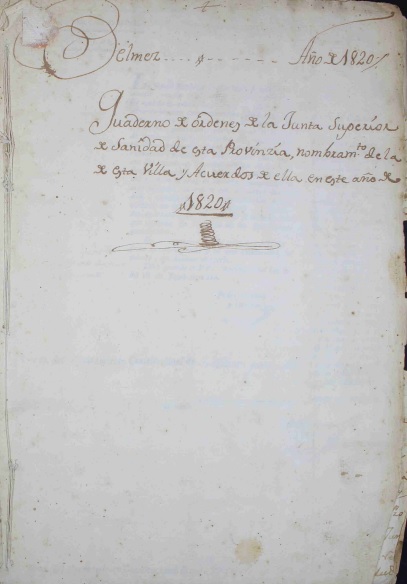 Bélmez Año de 1820
Quaderno de órdenes de la Junta Superior
de Sanidad de esta Provinzia, nombram.to de la
de esta Villa y Acuerdos de ella en este año de
1820